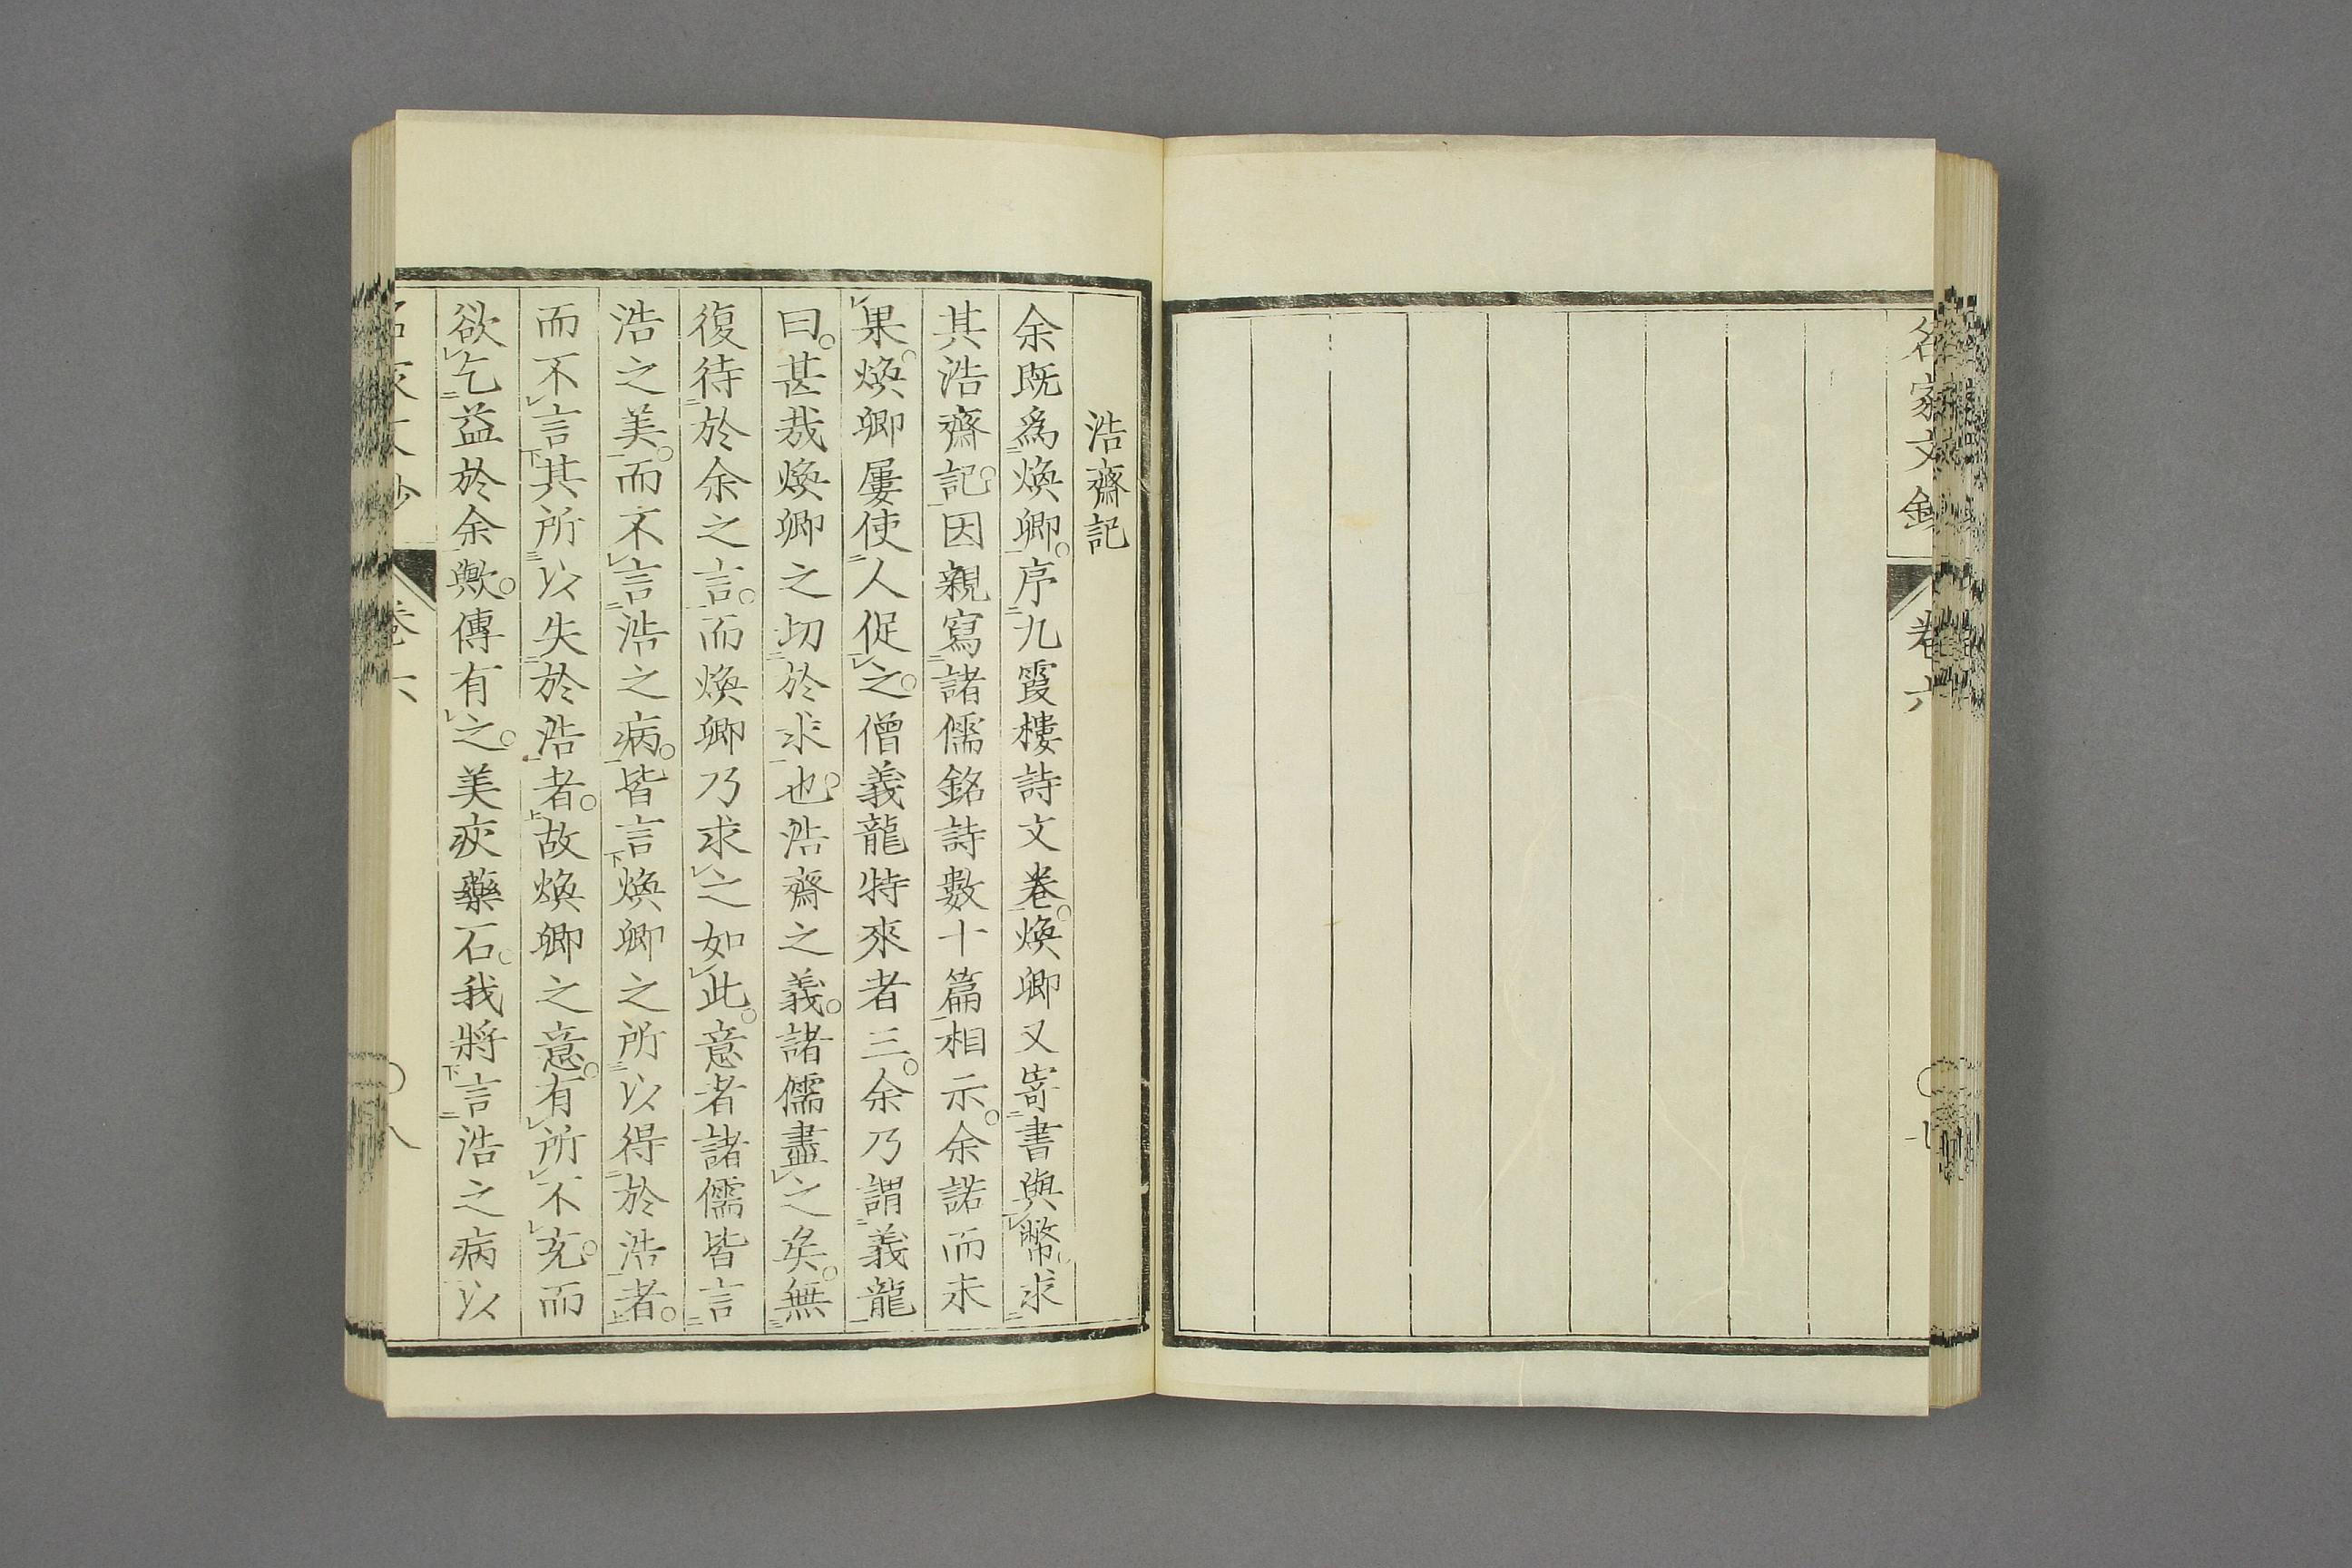 名家文鈔
卷六
浩齋記
余既爲煥卿序九霞樓詩文卷煥卿又寄書與幣求
其浩齋記因親寫諸儒銘詩數十篇相示余諾而未
果煥卿屢使人促之僧義龍特來者三余乃謂義龍
曰甚哉煥卿之切於求也浩齋之義諸儒盡之矣無
復待於余之言而煥卿乃求之如此意者諸儒皆言
浩之美而不言浩之病皆言煥卿之所以得於浩者
而不言其所以失於浩者故煥卿之意有所不充而
欲乞益於余歟傳有之美疢藥石我將言浩之病以
卷六
八